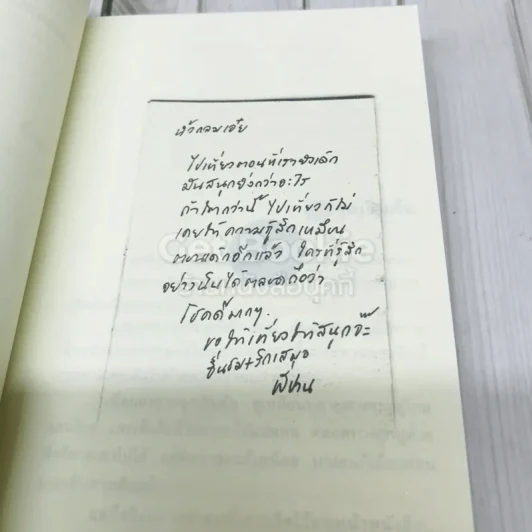 ไปเที่ยวตอนที่เรายังเด็ก
มันสนุกยิ่งกว่าอะไร
ถ้าโตกว่านี้ ไปเที่ยวก็ไม่
เคยให้ความรู้สึกเหมือน
ตอนเด็กอีกแล้ว ใครที่รู้สึก
อย่างนั้นได้ตลอดถือว่า
โชคดีมากๆ.
ขอให้เที่ยวให้สนุกจ๊ะ
ชื่นชม+รักเสมอ
Get Bookie
ร้านหนังสือบุคกี้